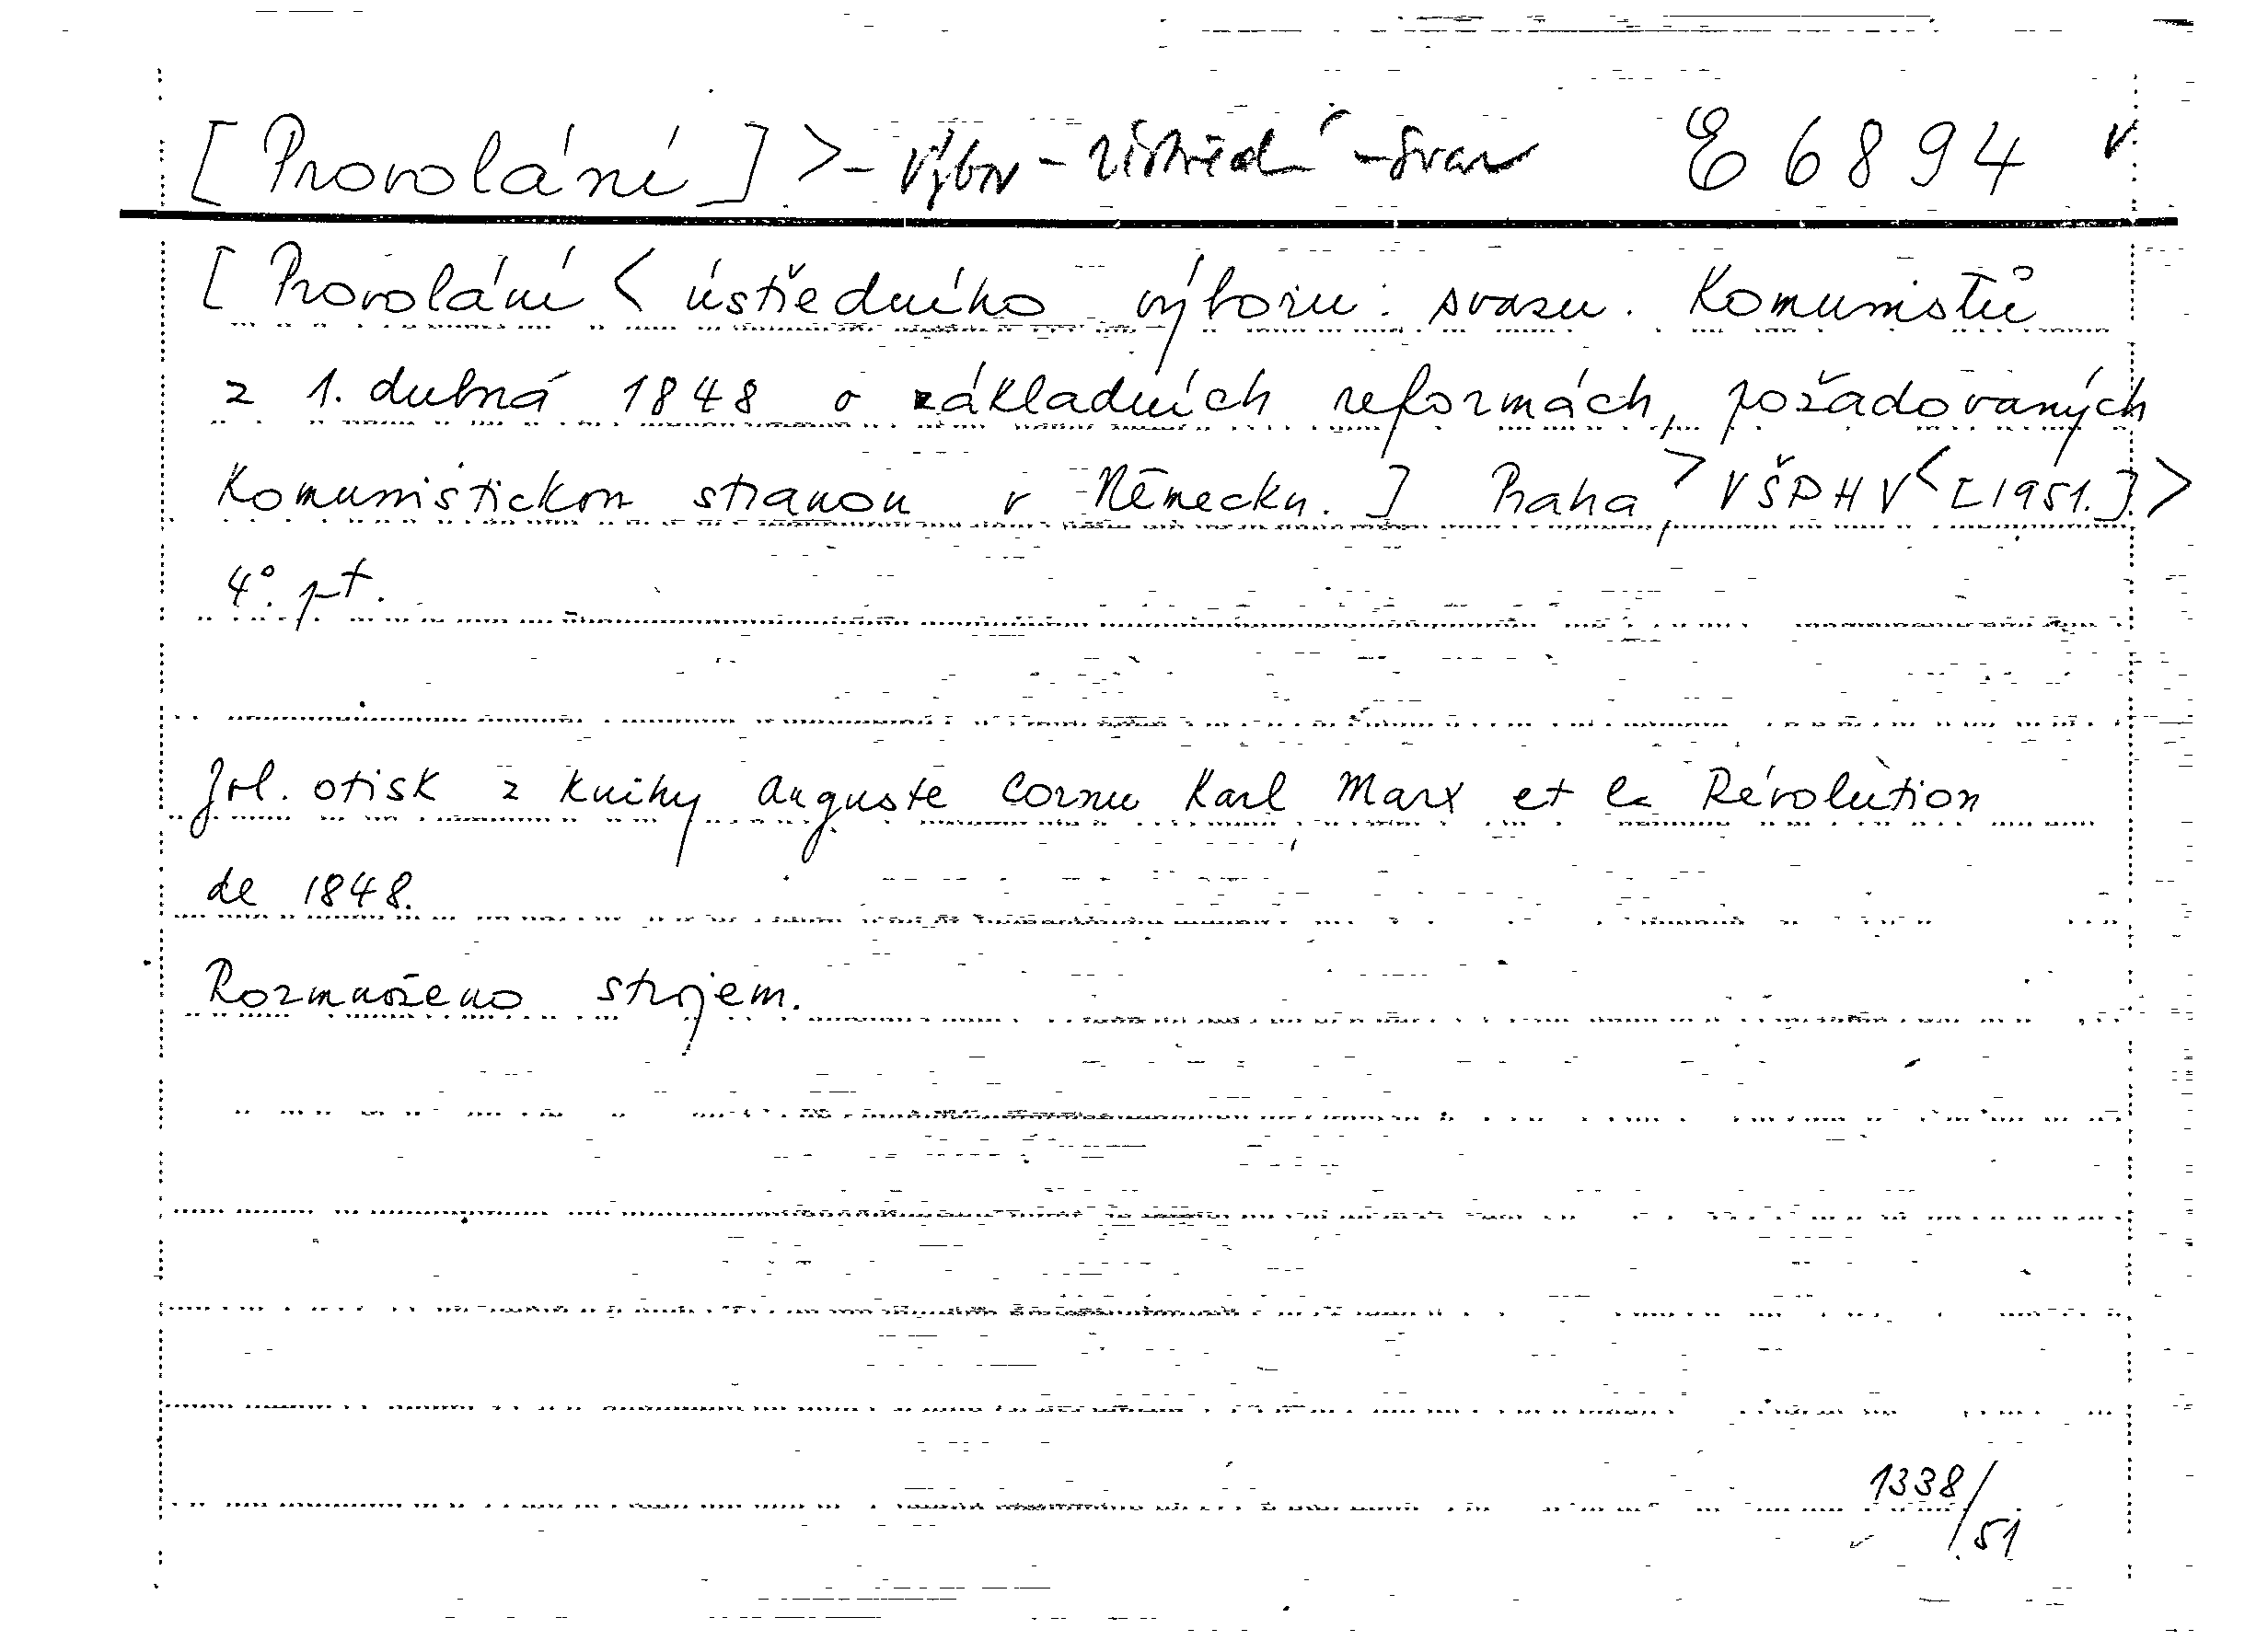 [Provolání] >- Výbor - ústřední - svaz E 6894 v.
[Provolání < ústředního výboru svazu. Komunistů
z 1. dubna 1848 o základních reformách, požadovaných
Komunistickou stranou v Německu.] Praha, > VŠPHV < [1951.] >
4°. pt.
Zvl. otisk z knihy Auguste Cornu Karl Marx et la Révolution
de 1848.
Rozmnoženo strojem.
1338/51